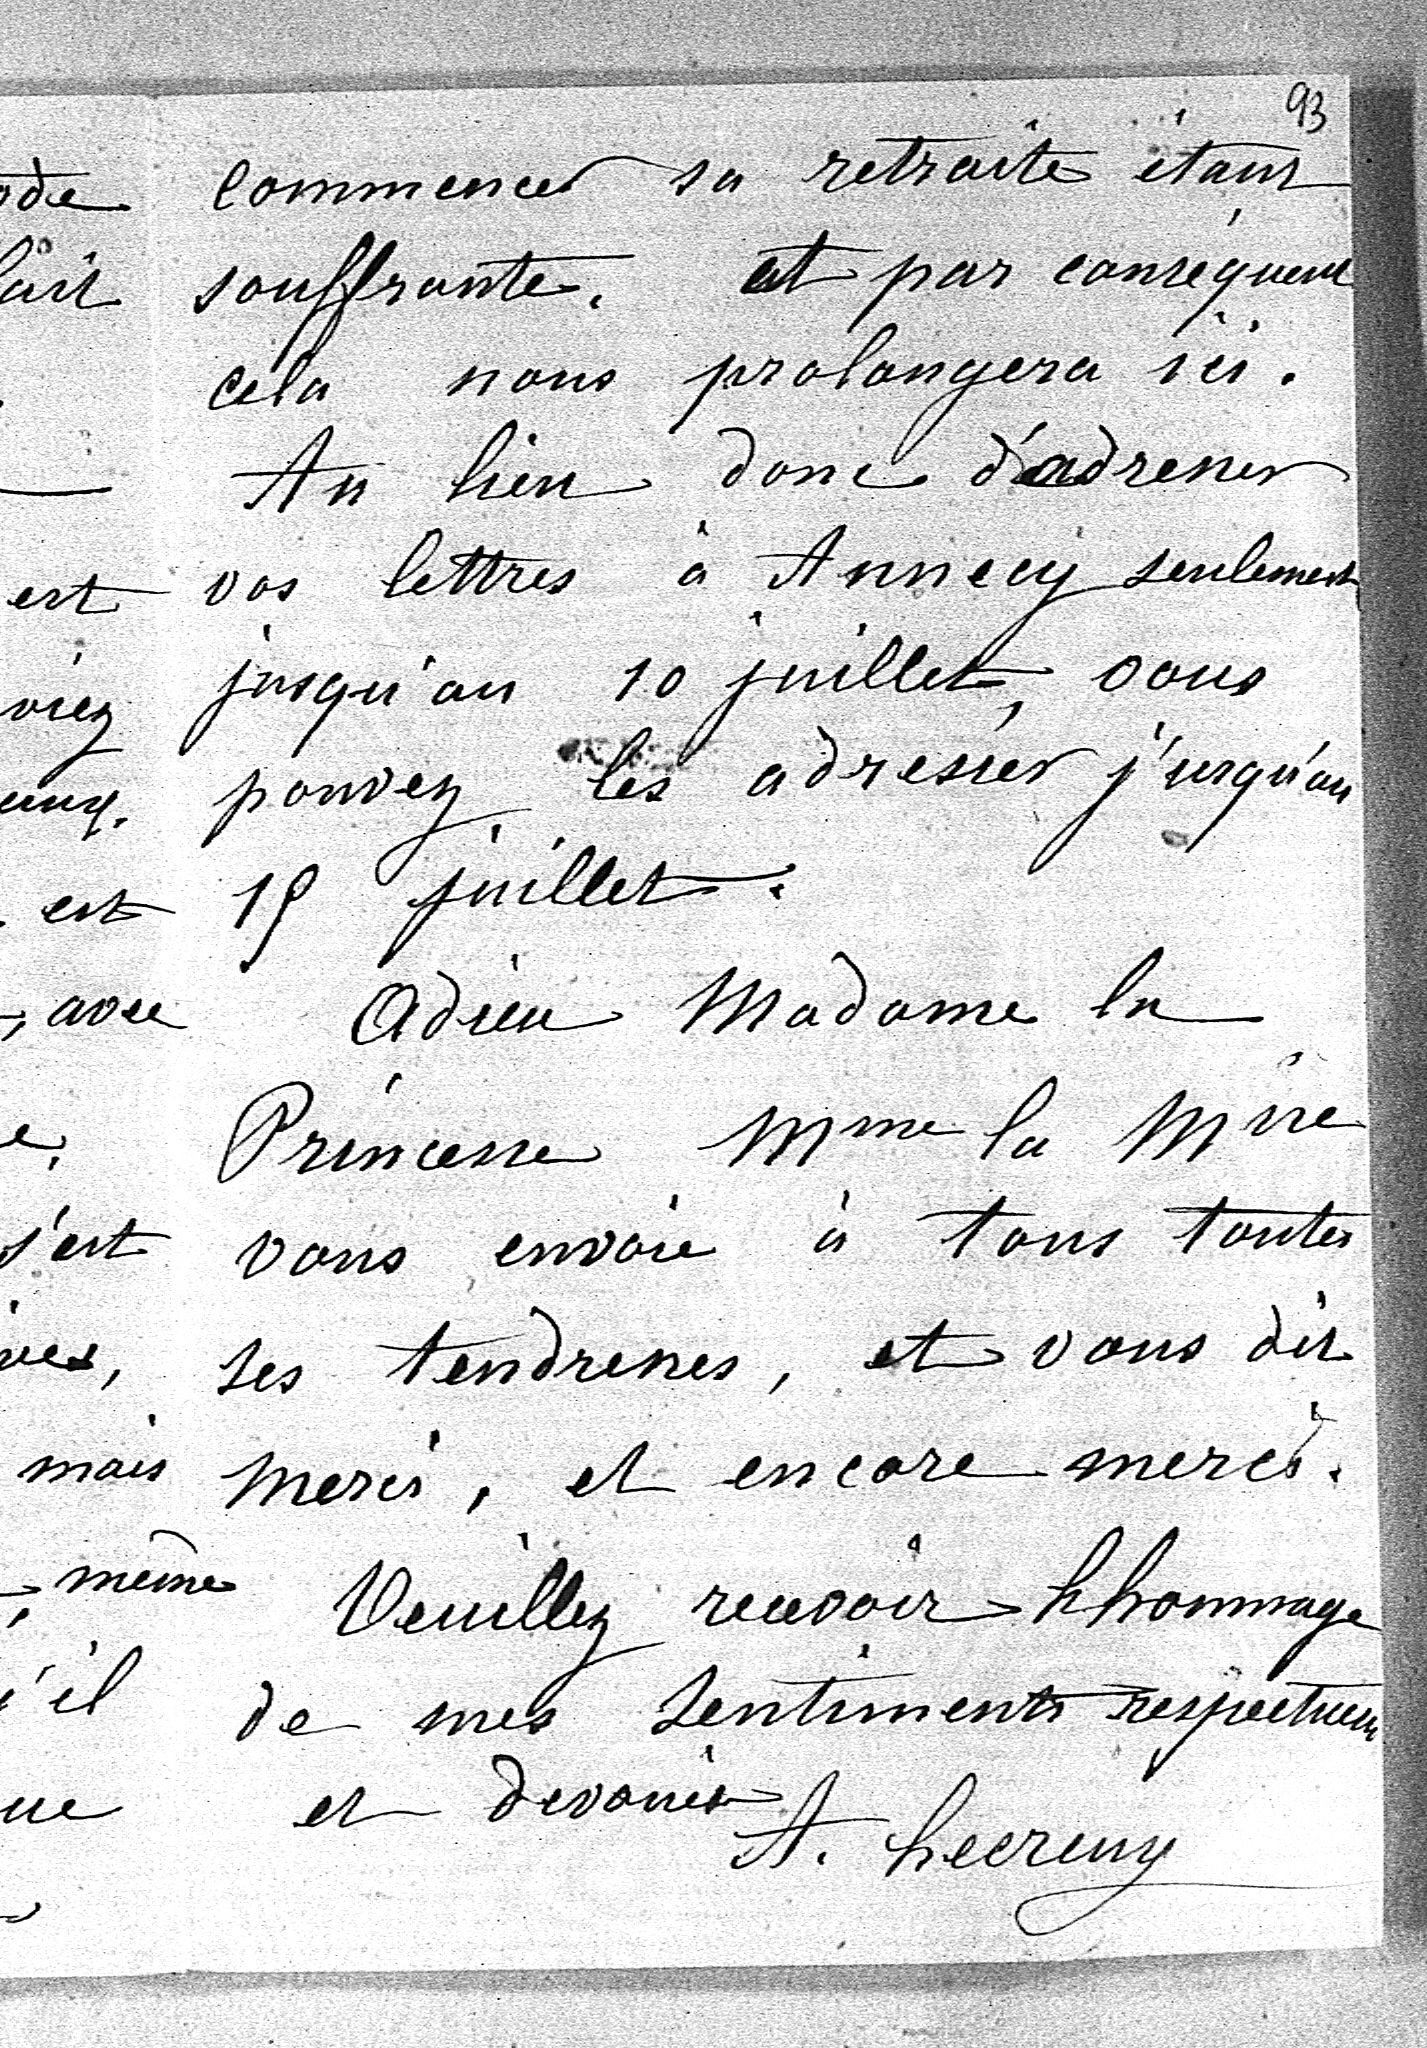 93
commencer sa retraite étant
souffrante. et par conséquent
cela nous prolongera ici.
Au lieu donc d'adresser
vos lettres à Annecy seulement
jusqu'au 10 juillet, vous
pouvez les adresser j'usqu'au
15 juillet.
Adieu Madame la
Princesse Mme la Mise
vous envoie à tous toutes
ses tendresses, et vous dit
merci, et encore merci.
Veuillez recevoir l'hommage
de mes sentiments respectueux
et dévoués
A. Lecreux
est
viez
est
, avec
s'est
mais
, même